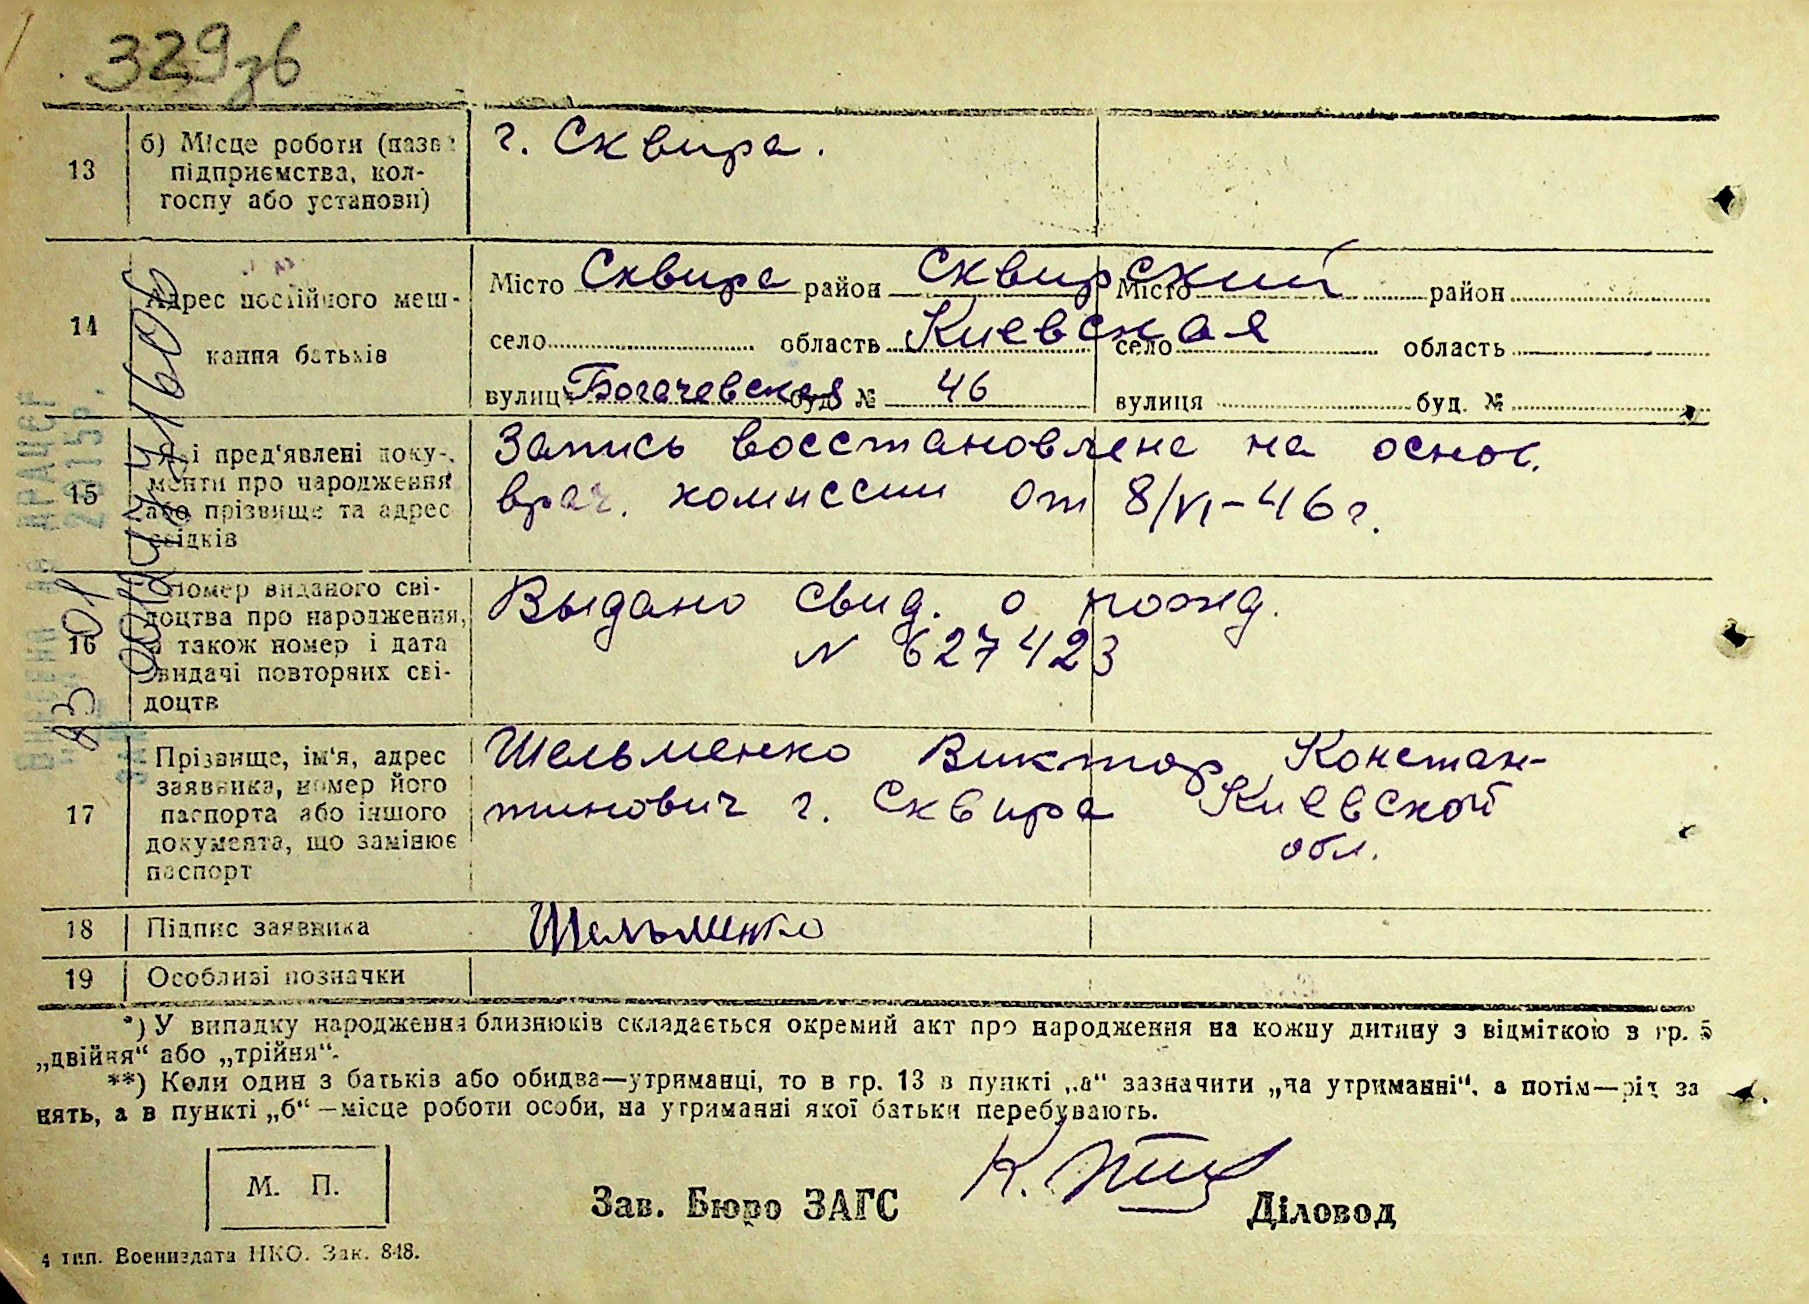 329зв
13
б) Місце роботи (назва
підприємства, кол-
госпу або установи)
г. Сквира.
14
Адрес постійного меш-
кання батьків
Місто Сквира район Сквирский
село область Киевская
вулиця Богачевская буд. № 46
Місто район
село область
вулиця буд. №
15
Які пред'явлені доку-
менти про народження
або прізвище та адрес
свідків
Запись восстановлена на основ.
врач. комиссии от 8/VI-46г.
16
Номер виданого сві-
доцтва про народження,
а також номер і дата
видачі повторних сві-
доцтв
Выдано свид. о рожд.
N 627423
17
Прізвище, ім'я, адрес
заявника, номер його
паспорта або іншого
документа, що замінює
паспорт
Шельменко Виктор Констан-
тинович г. Сквира Киевской
обл.
18
Підпис заявника
Шельменко
19
Особливі позначки
*) У випадку народження близнюків складається окремий акт про народження на кожну дитину з відміткою в гр. 5
„двійня“ або „трійня“.
**) Коли один з батьків або обидва—утриманці, то в гр. 13 в пункті „а“ зазначити „на утриманні“, а потім—рід за
нять, а в пункті „б“ —місце роботи особи, на утриманні якої батьки перебувають.
М. П.
Зав. Бюро ЗАГС
Діловод
4 тип. Воениздата НКО. Зак. 848.